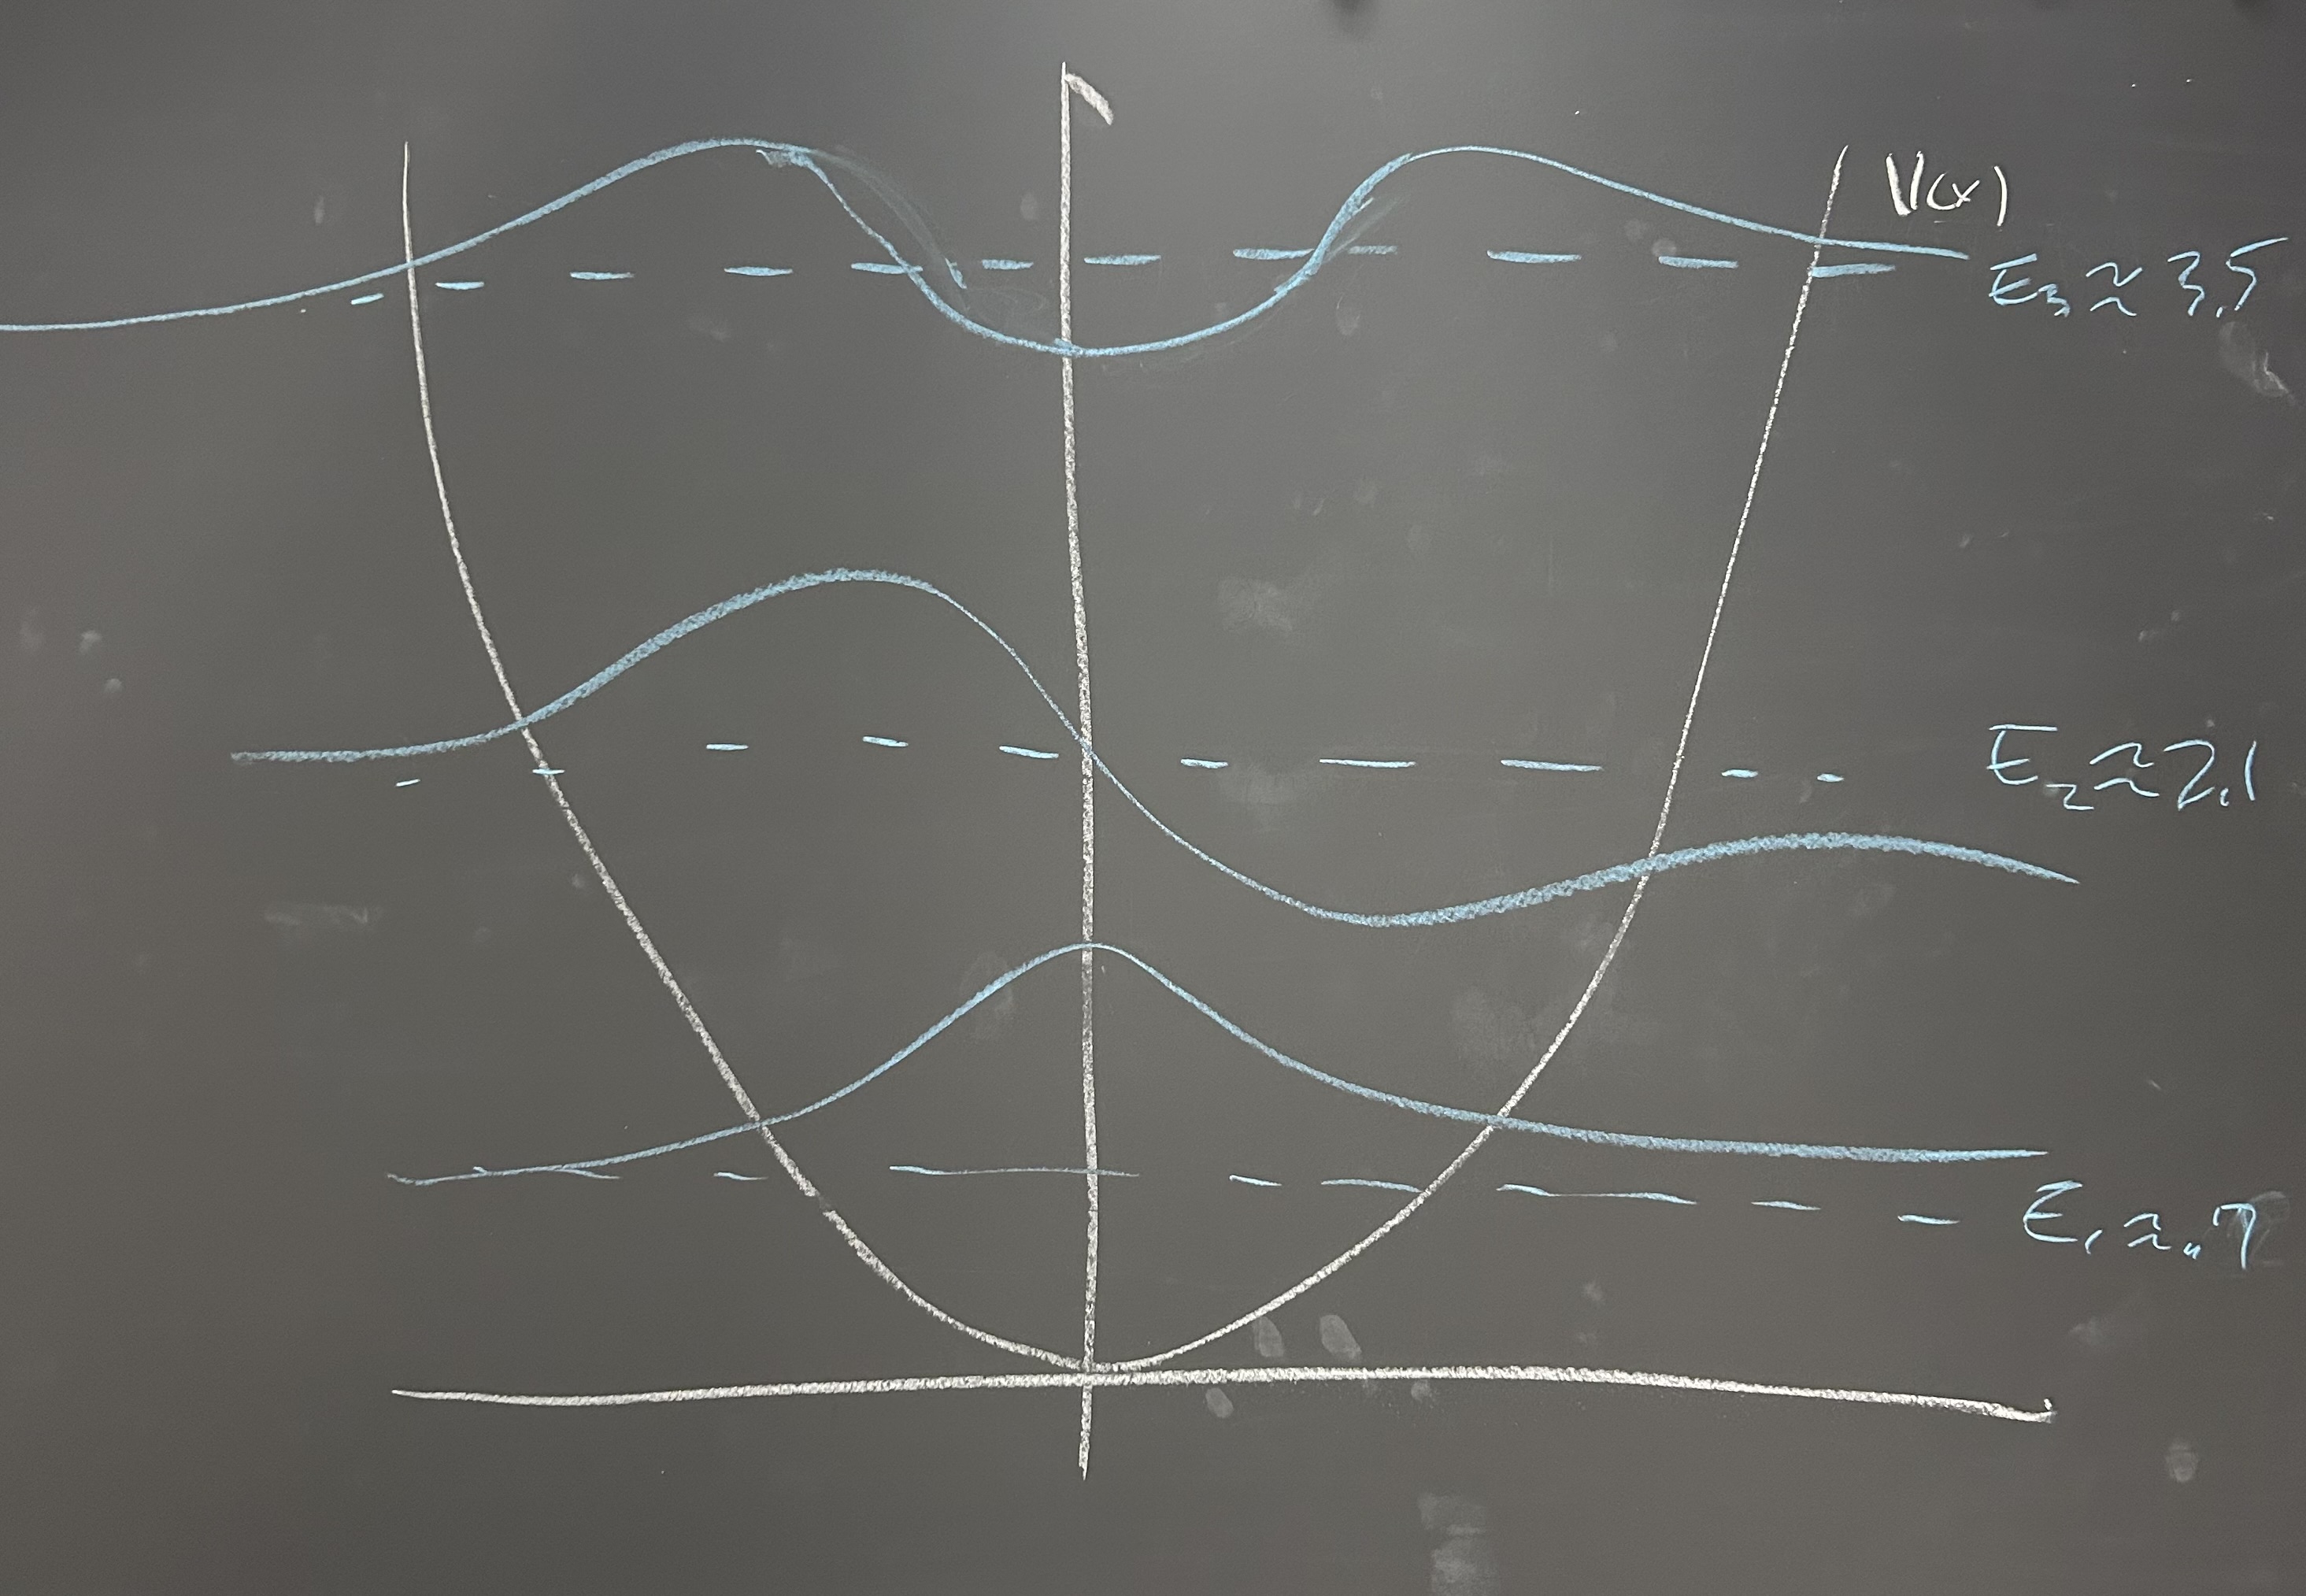 V(x)
E₃ ≈ 3.5
E₂ ≈ 2.1
E₁ ≈ .7